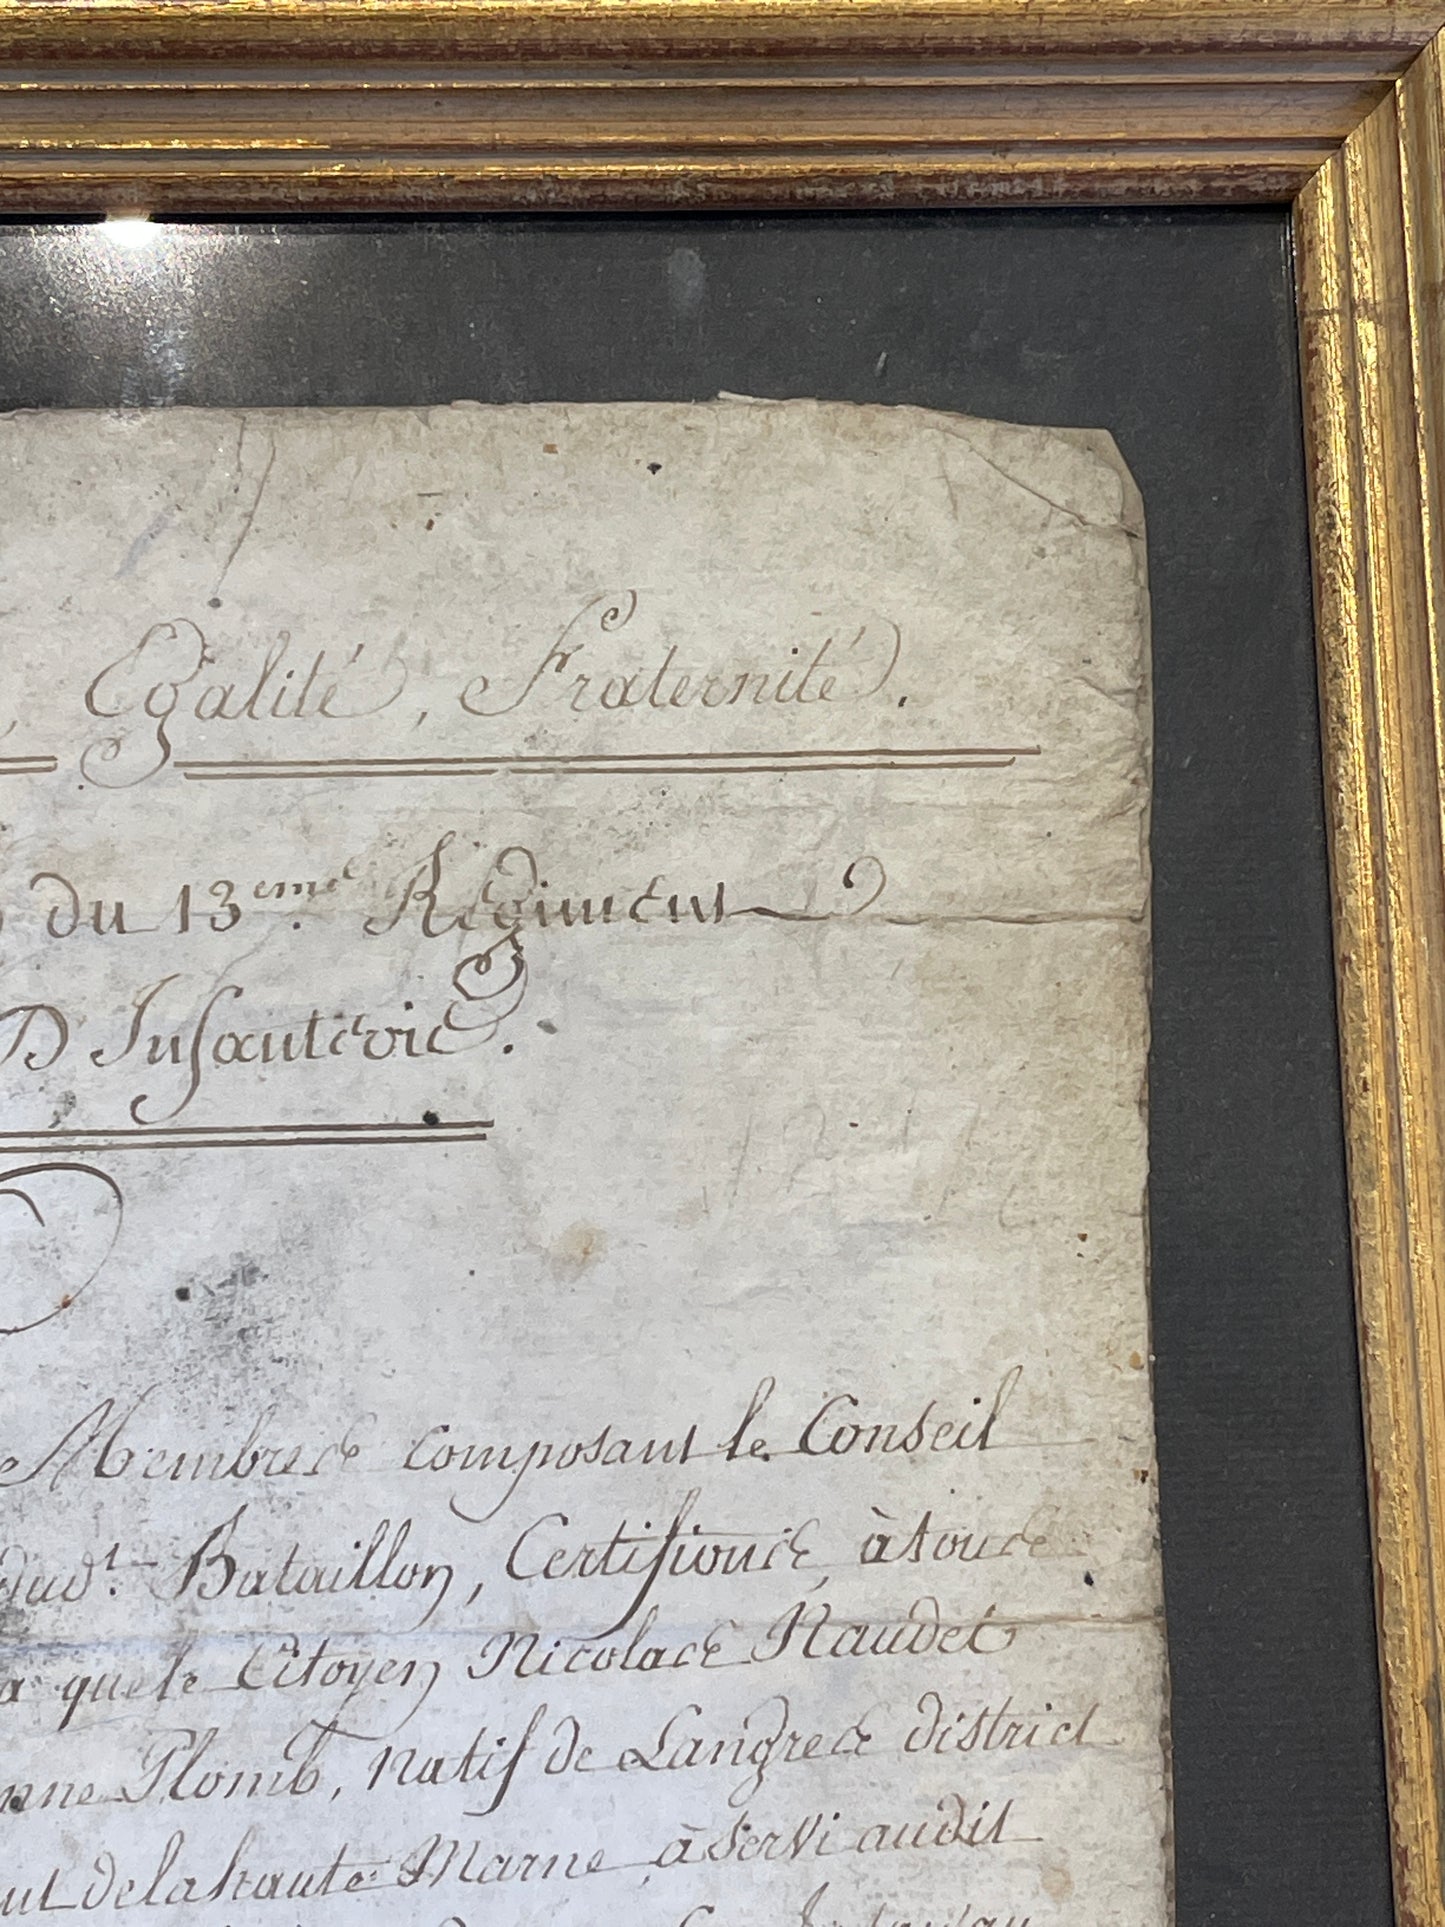 Egalité, Fraternité.
du 13eme. Régiment
D Infanterie.
Membres composant le Conseil
dud.t Bataillon, Certifions, à tous
que le Citoyen Nicolas Naudet
Plomb, natif de Langres district
de la haute Marne, à servi audit